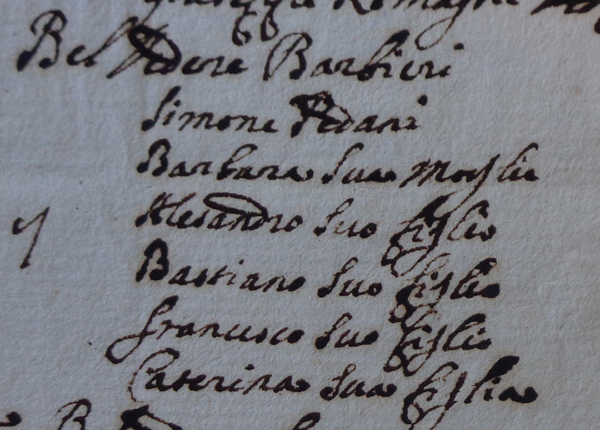 Romagn
Bel Vedere Barbieri
Simone Pedani
Barbara sua Moglie
Alesandro suo figlio
Bastiano suo figlio
francesco suo figlio
Caterina sua figlia